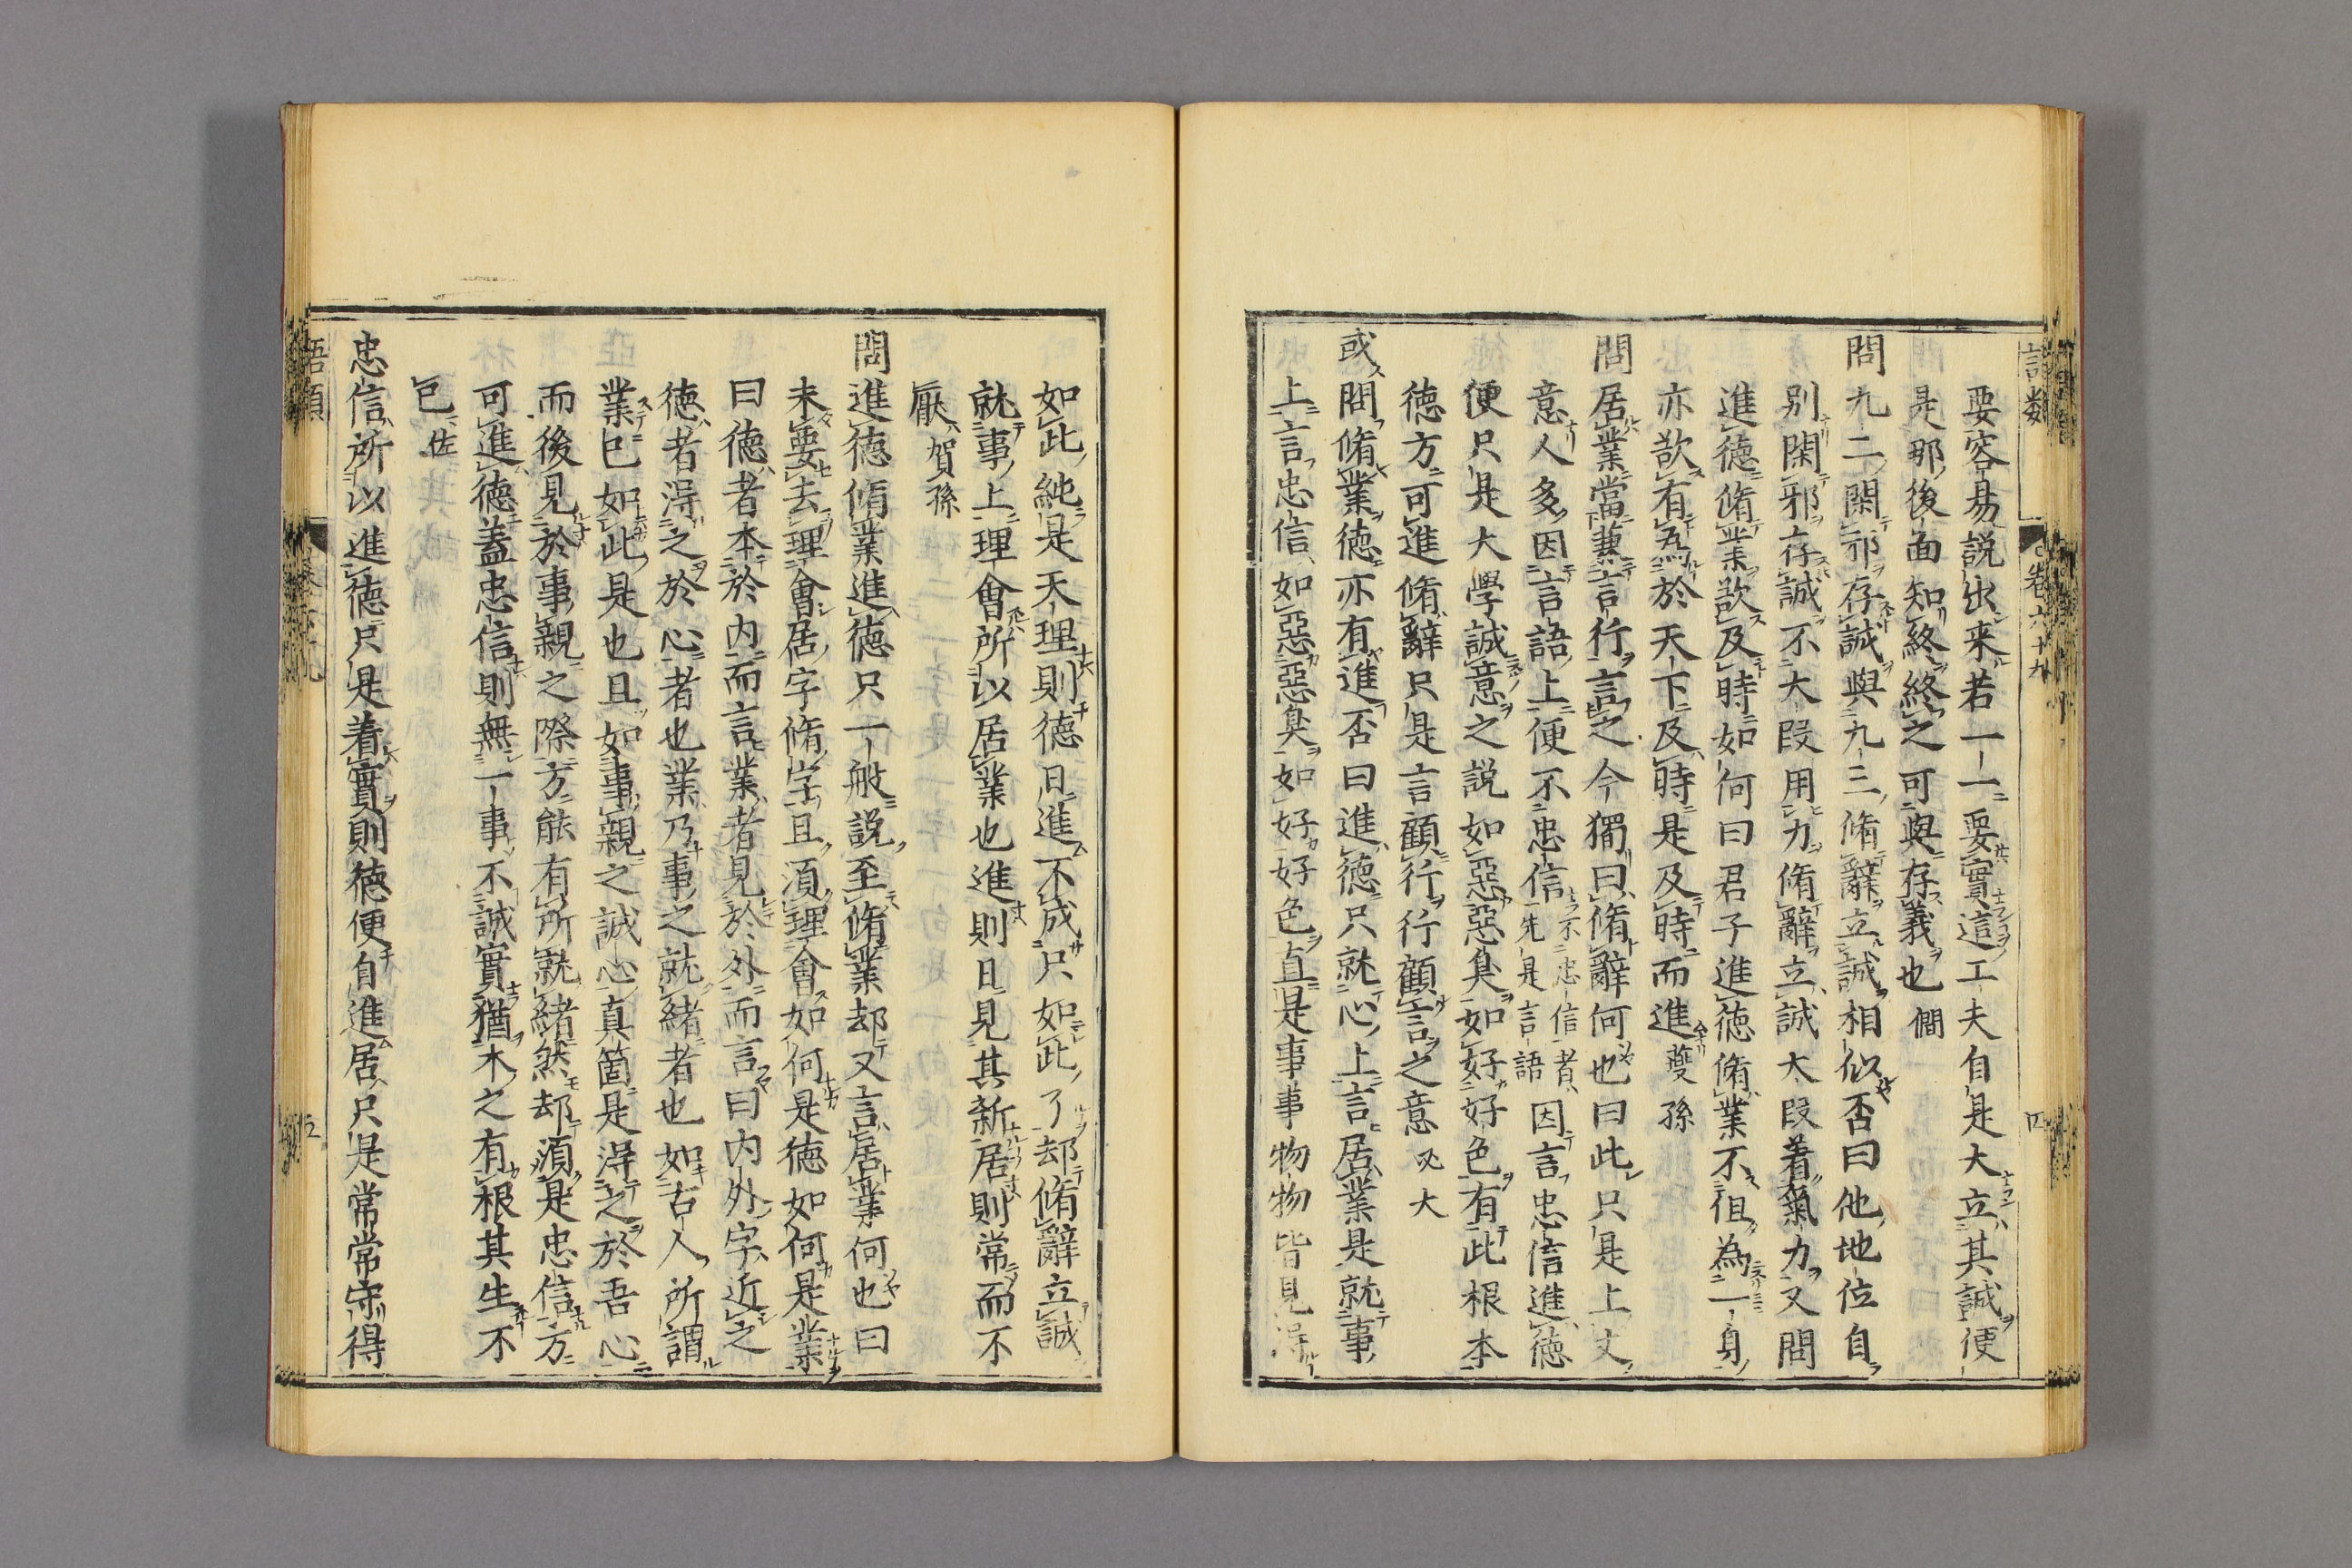 語類 卷六十九 四
要容易說出来若一一要實這工夫自是大立其誠便
是那後面知終終之可與存義也 僩
問九二閑邪存誠與九三脩辭立誠相似否曰他地位自
別閑邪存誠不大段用力脩辭立誠大段着氣力又問
進德脩業欲及時如何曰君子進德脩業不徂為一身
亦欲有為於天下及時是及時而進 夔孫
問居業當兼言行言之今獨曰脩辭何也曰此只是上文
意人多因言語上便不忠信 不忠信者先是言語 因言忠信進德
便只是大學誠意之說如惡惡臭如好好色有此根本
德方可進脩辭只是言顧行行顧言之意 必大
或問脩業德亦有進否曰進德只就心上言居業是就事
上言忠信如惡惡臭如好好色直是事事物物皆見得
如此純是天理則德日進不成只如此了却脩辭立誠
就事上理會所以居業也進則日見其新居則常而不
厭 賀孫
問進德脩業進德只一般說至脩業却又言居業何也曰
未要去理會居字脩字且湏理會如何是德如何是業
曰德者本於内而言業者見於外而言曰内外字近之
德者淂之於心者也業乃事之就緒者也如古人所謂
業已如此是也且如事親之誠心真箇是淂之於吾心
而後見於事親之際方能有所就緒然却湏是忠信方
可進德蓋忠信則無一事不誠實猶木之有根其生不
已 佐
忠信所以進德只是着實則德便自進居只是常常守得
語類 卷六十九 五